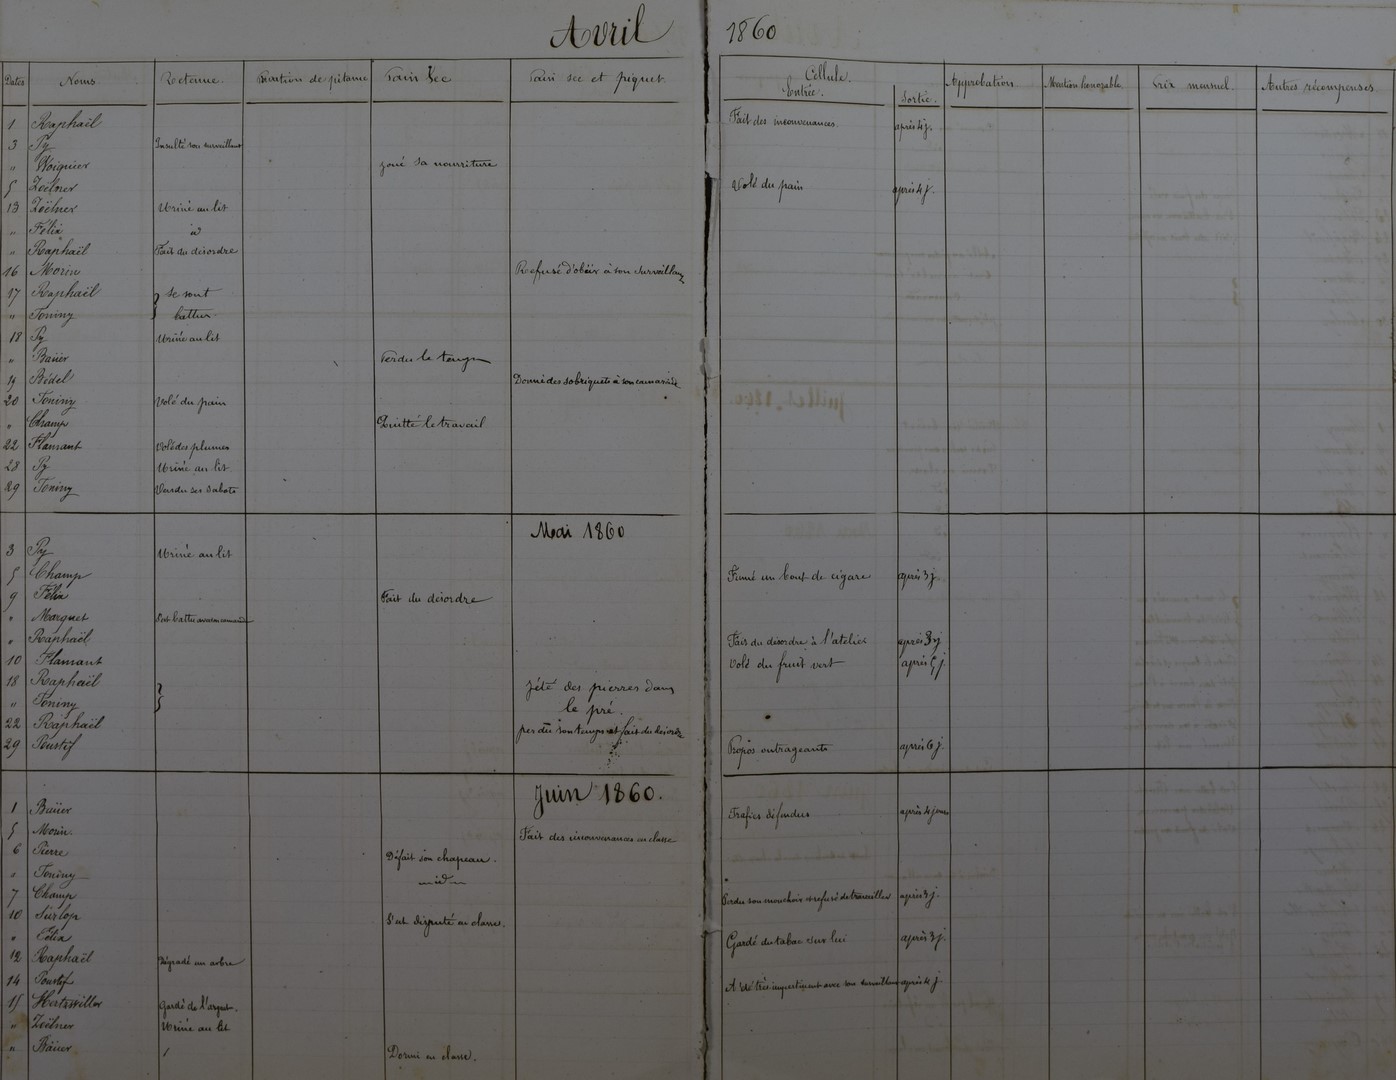 Avril 1860
Dates Noms Retenue. Privation de pitance Pain Sec Pain sec et piquet. Cellule. Entrée. Sortie. Approbation Mention honorable. Prix mensuel. Autres récompenses
1 Raphaël Fait des inconvenances. après 4 j.
3 Py Insulté son surveillant
" Woignier joué sa nourriture
5 Zoëlner Volé du pain après 4 j.
13 Zoëlner Uriné au lit
" Félix id
" Raphaël Fait du désordre
16 Morin Refusé d'obéir à son surveillant
17 Raphaël } se sont
" Toniny } battus.
18 Py Uriné au lit
" Baüer Perdu le temps
19 Bédel Donné des sobriquets à son camarade
20 Toniny Volé du pain
" Champ Quitté le travail
22 Flamant Volé des plumes
28 Py Uriné au lit
29 Toniny Vendu ses sabots
Mai 1860
3 Py Uriné au lit
5 Champ Fumé un bout de cigare après 3 j.
9 Félix Fait du désordre
" Marquet S'est battu avec son camarade
" Raphaël Fait du désordre à l'atelier après 3 j
10 Flamant Volé du fruit vert après 5 j.
18 Raphaël } jété des pierres dans
" Toniny } le pré.
22 Raphaël perdu son temps et fait du désordre
29 Poustif Propos outrageants après 6 j.
Juin 1860.
1 Baüer Trafics défendus après 4 jours
5 Morin. Fait des inconvenances en classe
6 Pierre Défait son chapeau.
" Toniny id
7 Champ Perdu son mouchoir et refusé de travailler après 3 j.
10 Surlop S'est disputé en classe.
" Félix Gardé du tabac sur lui après 3 j.
12 Raphaël Dégradé un arbre
14 Poustif A été très impertinent avec son surveillant après 4 j
15 Hertzwiller Gardé de l'argent.
" Zoëlner Uriné au lit
" Baüer Dormi en classe.